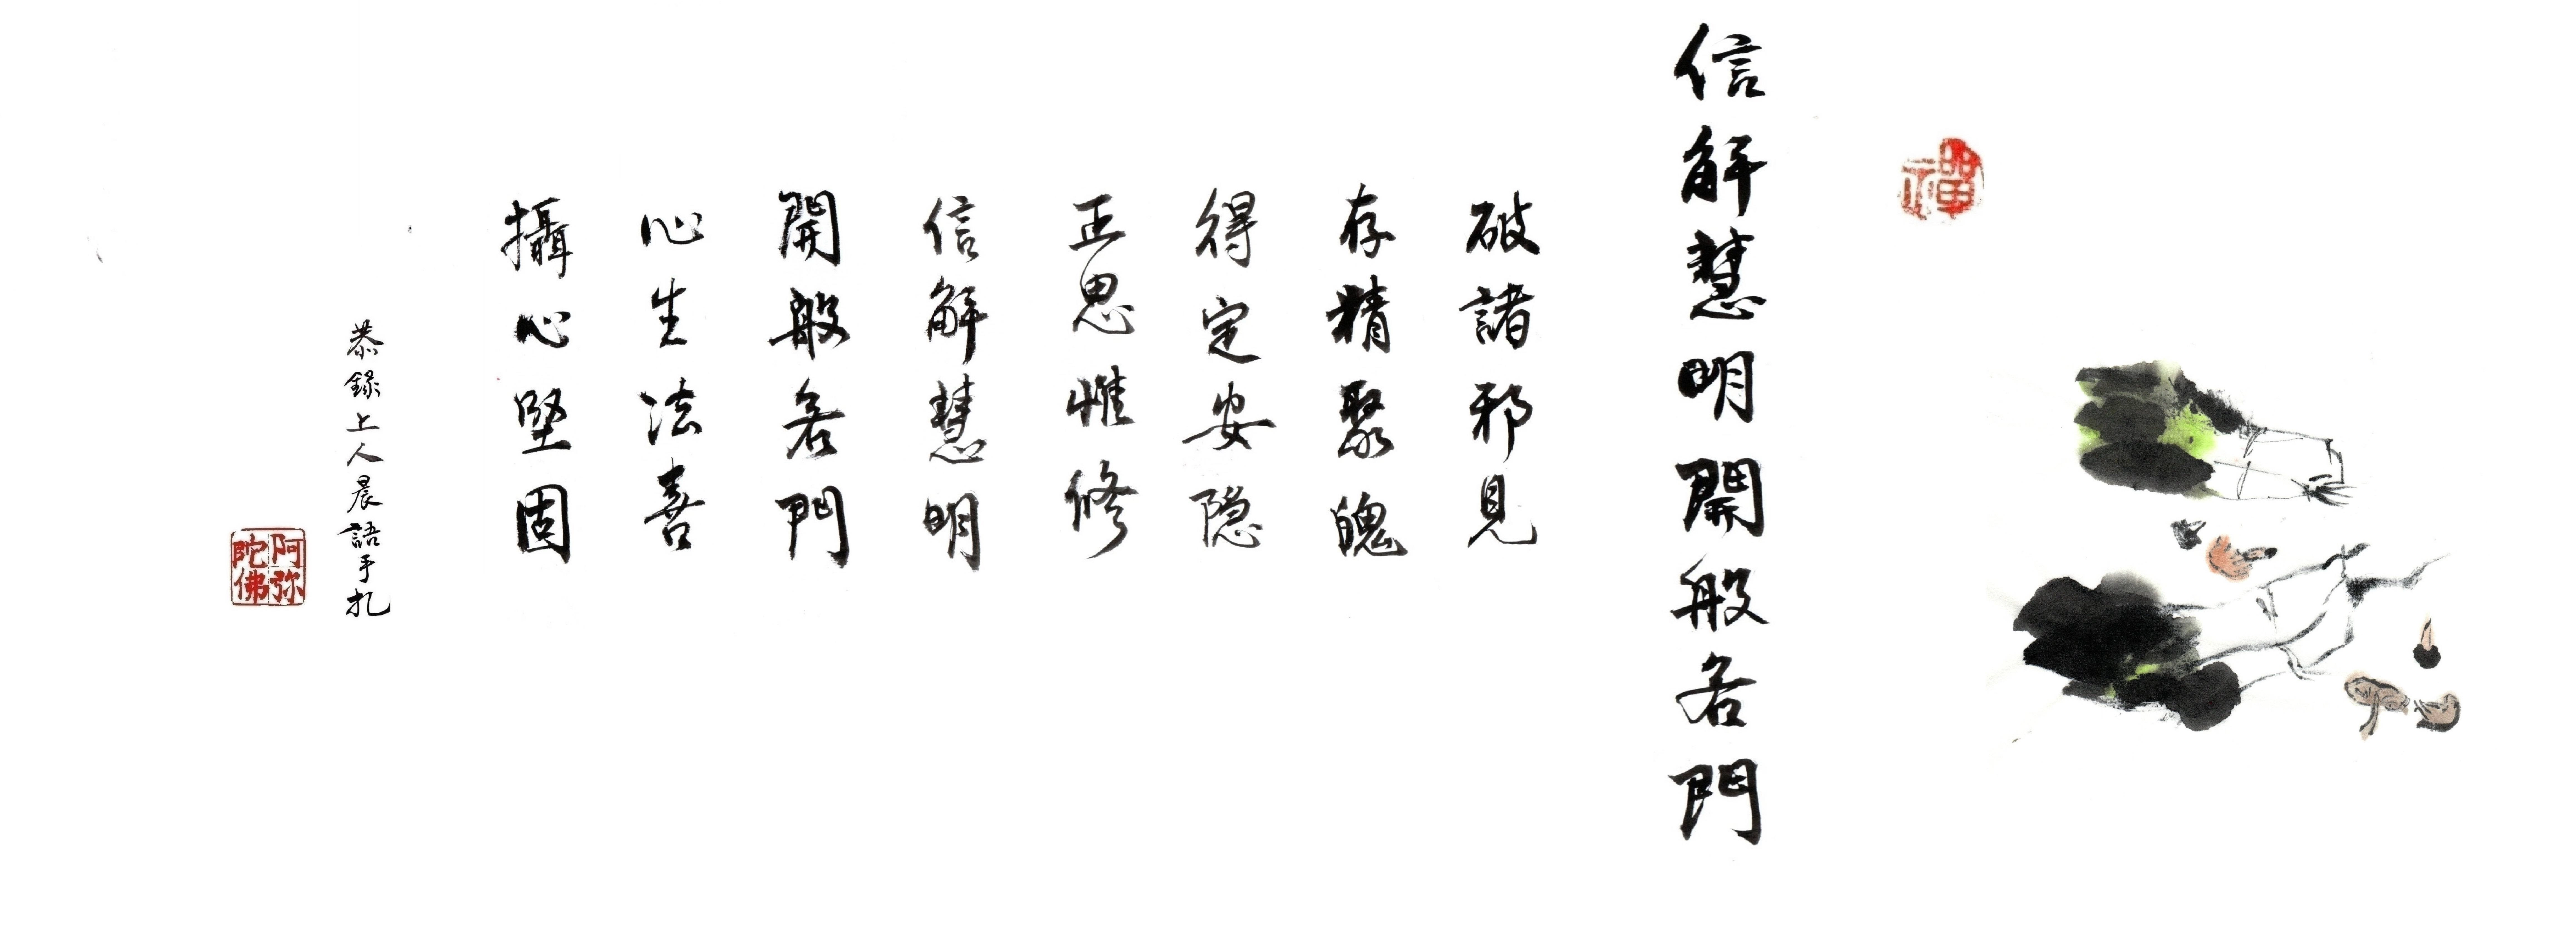 禪
信解慧明開般若門
破諸邪見
存精聚魄
得定安隐
正思惟修
信解慧明
開般若門
心生法喜
攝心堅固
恭錄上人晨語手札
阿弥陀佛